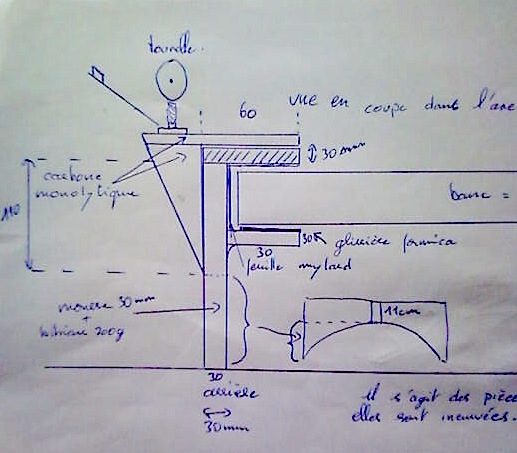 tourelle.
60
vue en coupe dans l'axe
30 mm
carbone
monolytique
110
barre =
30
glissière formica
30
feuille mylard
mousse 30mm
+
200g
11cm
30
arrière
30mm
il s'agit des pièce
elles sont incurvées.